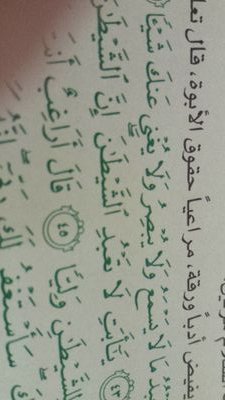 يفيض أدباً ورقة، مراعياً حقوق الأبوة، قال تعا
مَا لَا يَسْمَعُ وَلَا يُبْصِرُ وَلَا يُغْنِى عَنكَ شَيْـًٔا
﴿٤٣﴾ يَٰٓأَبَتِ لَا تَعْبُدِ ٱلشَّيْطَٰنَ إِنَّ ٱلشَّيْطَٰنَ
لِلشَّيْطَٰنِ وَلِيًّا ﴿٤٥﴾ قَالَ أَرَاغِبٌ أَنتَ
سَأَسْتَغْفِرُ لَكَ